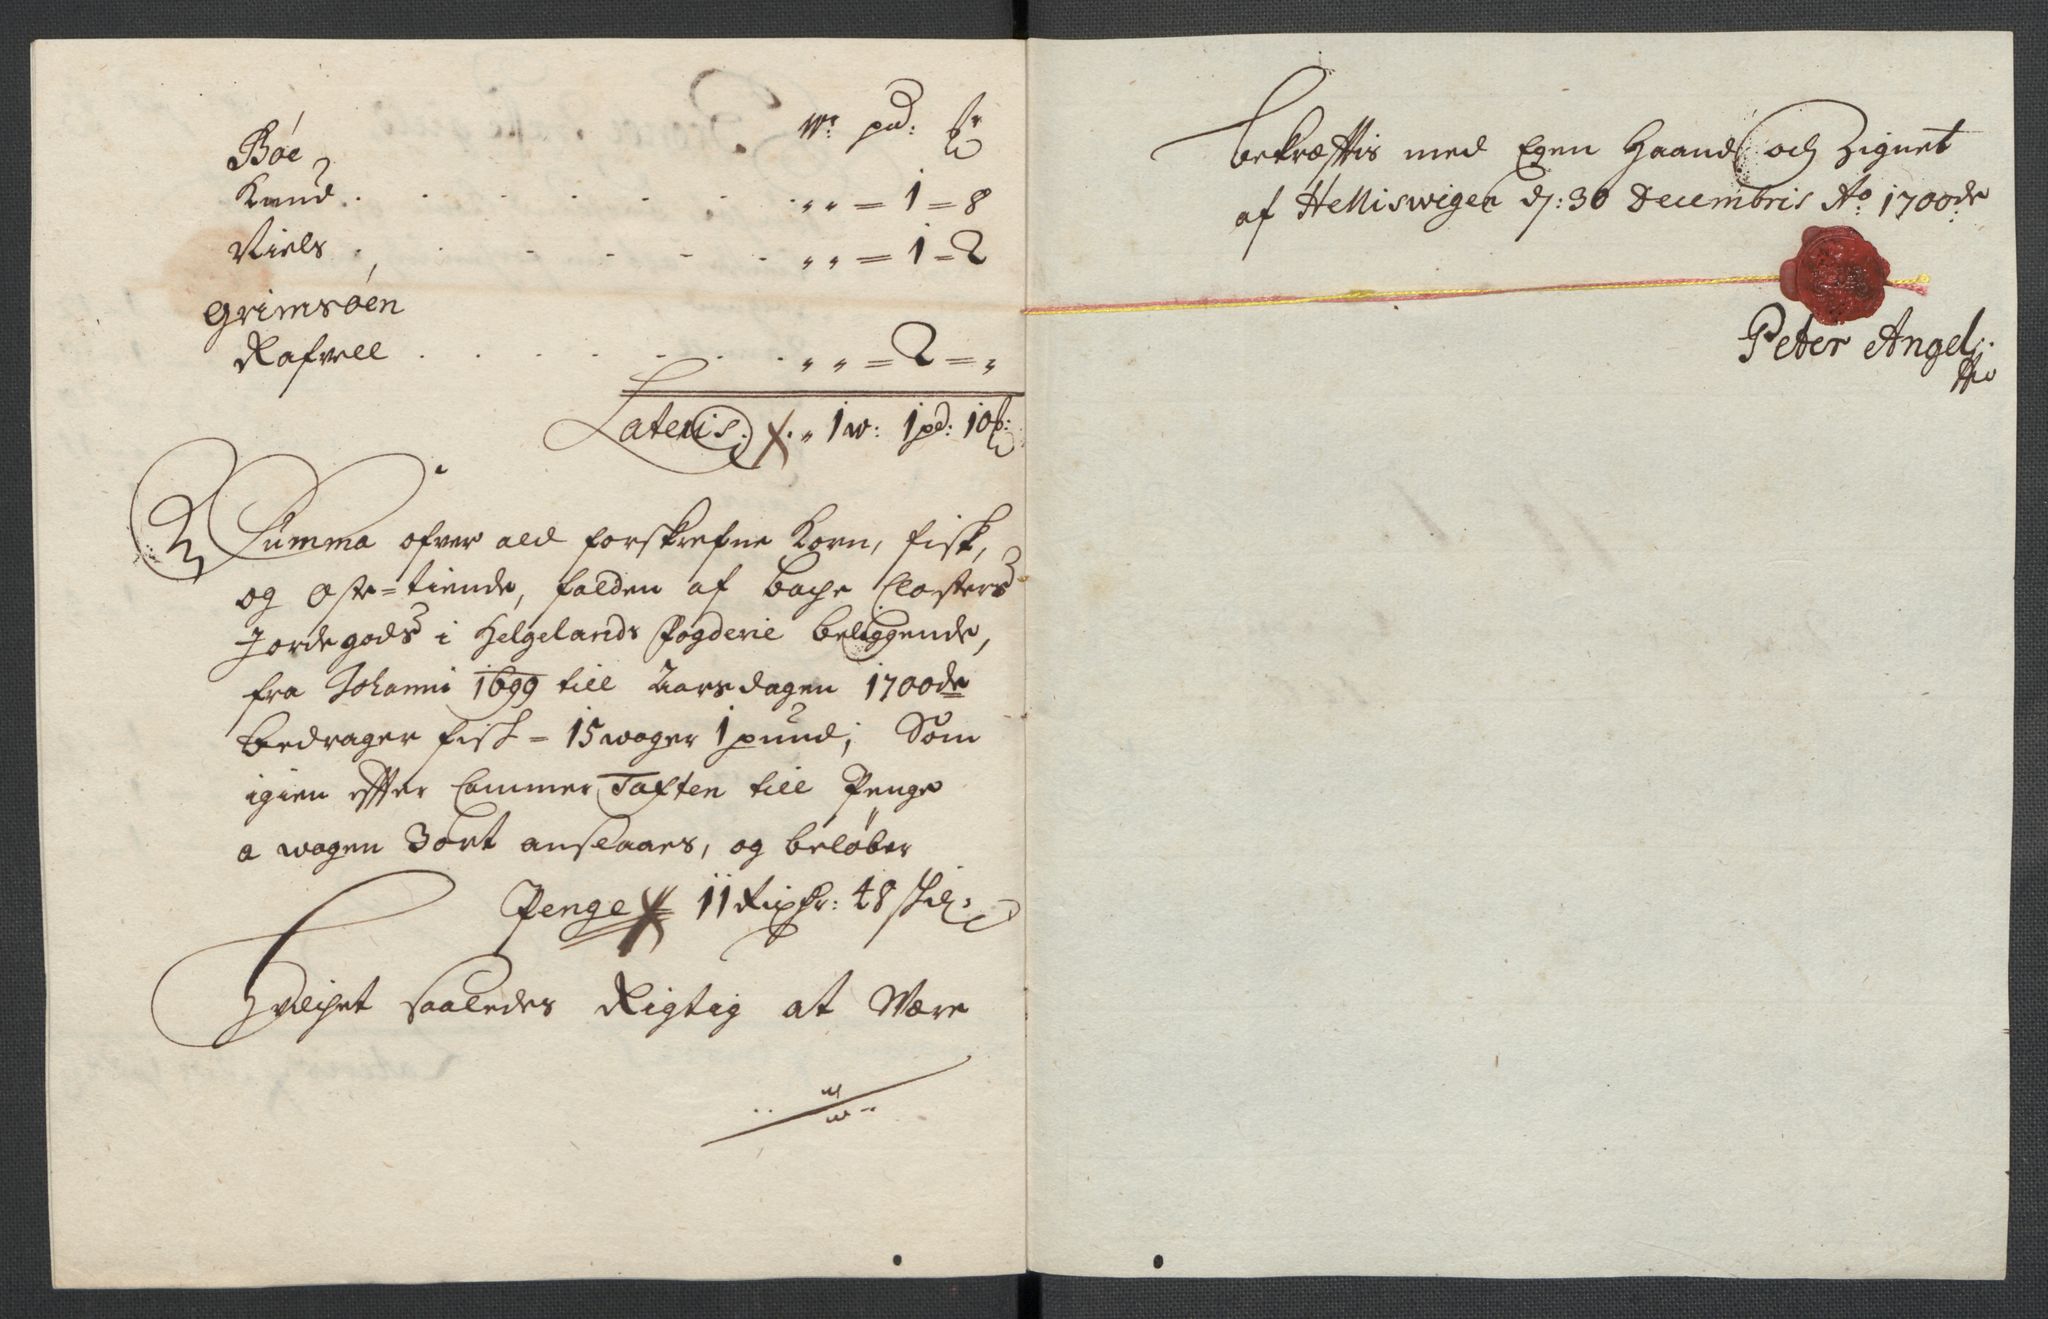 W: pd: ℔r
Bøe
Knud . . . . . . . „ „ = 1 = 8
Niels . . . . . . . „ „ = 1 = 2
Grimsøen
Rafvell . . . . . . „ „ = 2 = „
Lateris: „ 1 w: 1 pd: 10 ℔:
Summa ofver ald forskrefne Korn, fisk,
og Oste=tiende, falden af Bache Closters
Jordegods i Helgelands Fogderie beliggende,
fra Johanni 1699 till Aarsdagen 1700de
bedrager fisk = 15 woger 1 pund; Som
igien effter Cammer Taxten till Penge
a wogen 3 ort anslaaes, og beløber
Penge 11 Rixdr: 48 skil:
Hvilchet saaledes Rigtig at Være
Bekræfftis med Egen Haand och Zignet
af Helliswigen d: 30 Decembris Ao: 1700de
Peter Angel: